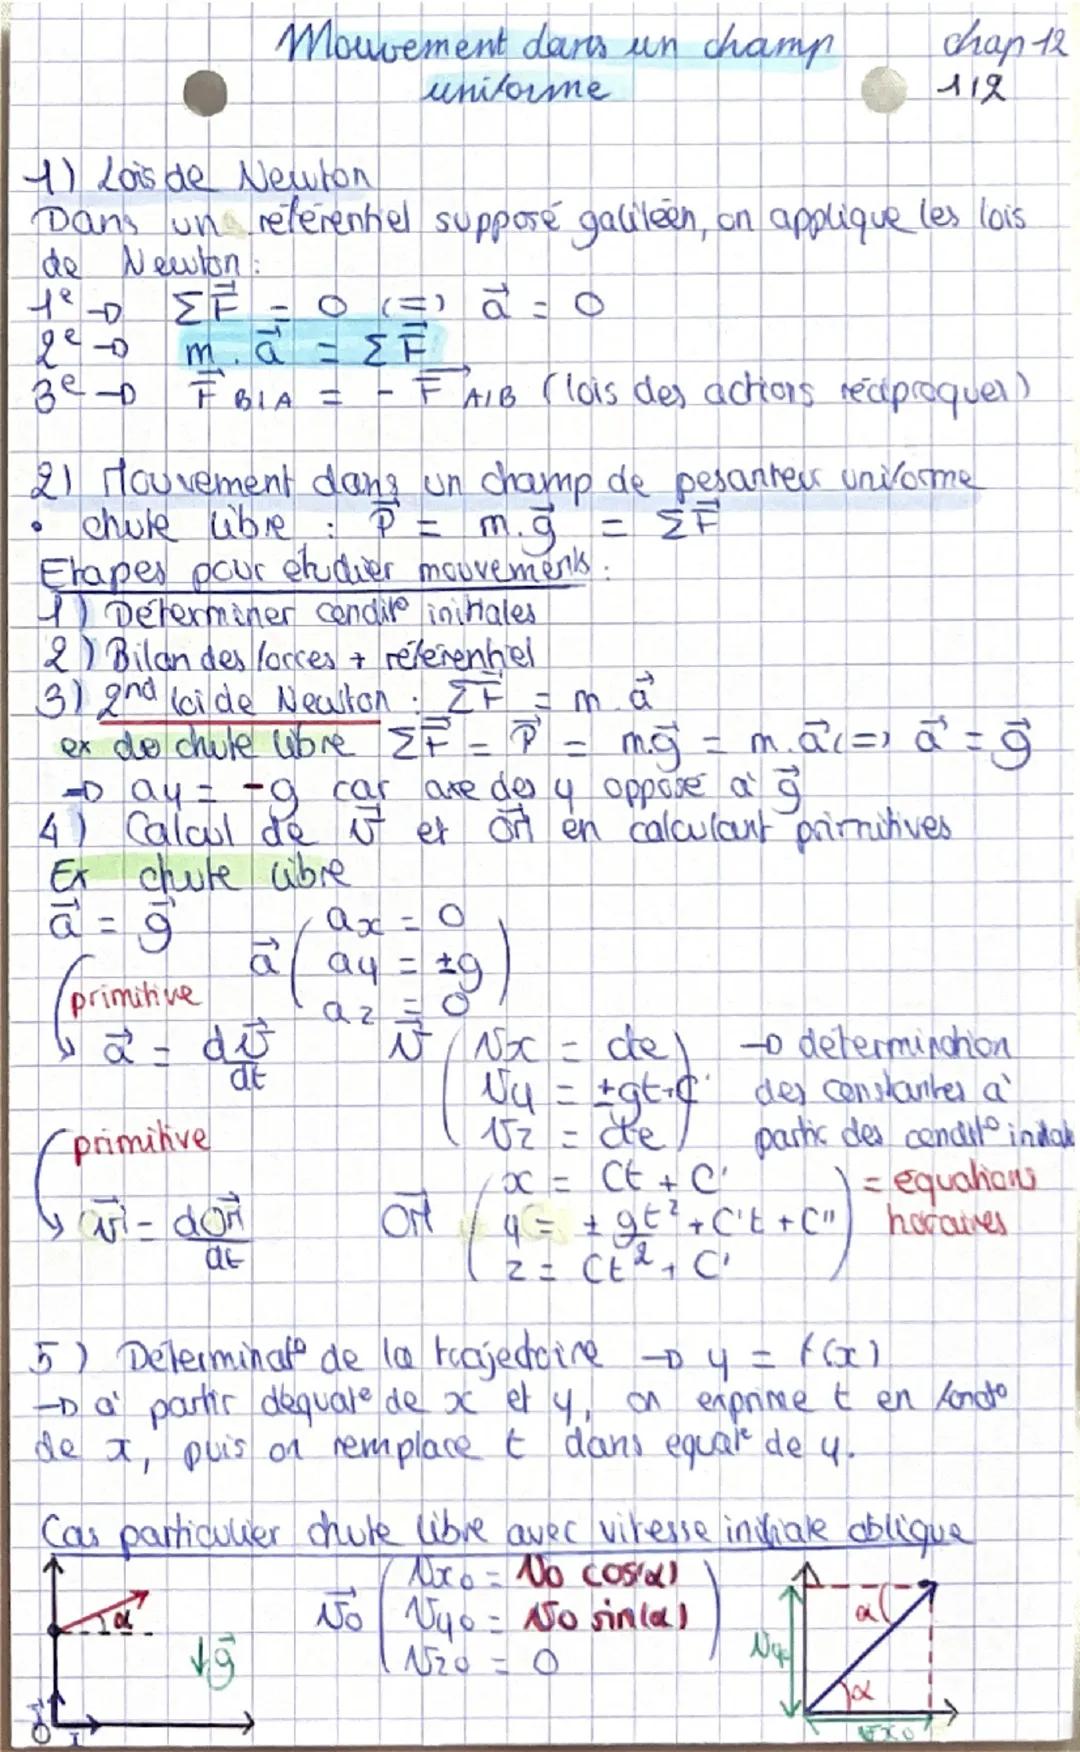 Mouvement dans un champ chap 12
uniforme 1/2
1) Lois de Newton
Dans un référentiel supposé galiléen, on applique les lois
de Newton :
1e → ΣF⃗ = 0 (=) a⃗ = 0
2e → m . a⃗ = ΣF⃗
3e → F⃗ B/A = - F⃗ A/B (lois des actions réciproques)
2) Mouvement dans un champ de pesanteur uniforme
• chute libre : P⃗ = m.g⃗ = ΣF⃗
Etapes pour étudier mouvements :
1) Déterminer condit° initiales
2) Bilan des forces + référentiel
3) 2nd loi de Newton : ΣF⃗ = m.a⃗
ex de chute libre ΣF⃗ = P⃗ = mg⃗ = m.a⃗ (=) a⃗ = g⃗
→ ay = -g car axe des y opposé à g⃗
4) Calcul de v⃗ et OM⃗ en calculant primitives
Ex chute libre
a⃗ = g⃗
a⃗ ( ax = 0
ay = ±g
az = 0 )
primitive
a⃗ = dv⃗/dt
v⃗ ( vx = cte
vy = ±gt+C'
vz = cte )
→ détermination
des constantes à
partir des condit° initiales
primitive
v⃗ = dOM⃗/dt
OM⃗ ( x = Ct + C'
y = ± gt²/2 + C't + C"
z = Ct + C' )
= equations
horaires
5) Déterminat° de la trajectoire → y = f(x)
→ à partir d'equat° de x et y, on exprime t en fonct°
de x, puis on remplace t dans equat° de y.
Cas particulier chute libre avec vitesse initiale oblique
α
g⃗
O
v⃗o ( vxo = vo cos(α)
vyo = vo sin(α)
vzo = 0 )
α
α
vxo